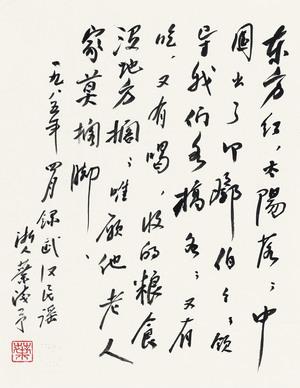 东方红，太陽落；中
国出了个鄧伯々；领
导我们各搞各；又有
吃，又有喝，收的粮食
没地方搁；唯愿他老人
家莫搁脚
一九八五年四月録武汉民谣
浙人葉浅予
葉